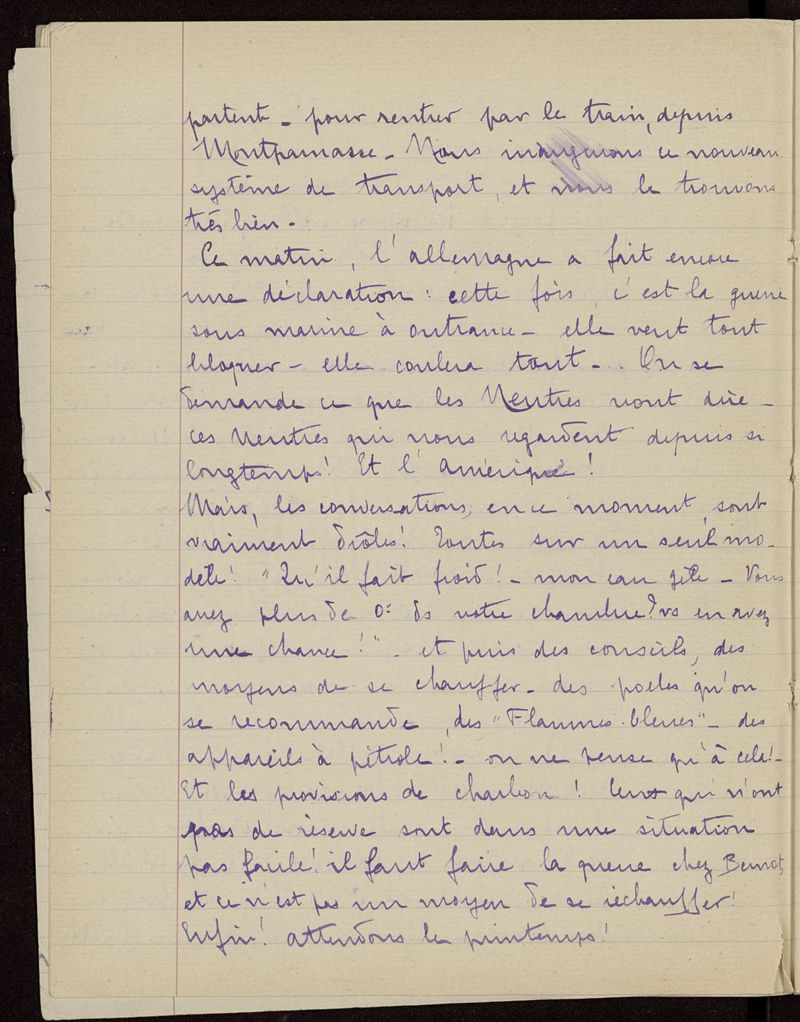 partent - pour rentrer par le train, depuis
Montparnasse - Nous inaugurons ce nouveau
système de transport, et nous le trouvons
très bien -
Ce matin, l'allemagne a fait encore
une déclaration : cette fois, c'est la guerre
sous marine à outrance - elle veut tout
bloquer - elle coulera tout - . On se
demande ce que les Neutres vont dire -
ces Neutres qui nous regardent depuis si
longtemps ! Et l'amérique !
Mais, les conversations, en ce moment, sont
vraiment drôles ! Toutes sur un seul mo-
dèle ! "Qu'il fait froid ! - mon eau gèle - Vous
avez plus de 0° ds votre chambre ? vs en avez
une chance !" - et puis des conseils, des
moyens de se chauffer - des poeles qu'on
se recommande, des "Flammes-bleues" - des
appareils à pétrole ! - on ne pense qu'à cela ! -
Et les provisions de charbon ! Ceux qui n'ont
pas de réserve sont dans une situation
pas facile ! il faut faire la queue chez Bernot,
et ce n'est pas un moyen de se réchauffer !
Enfin ! attendons le printemps !